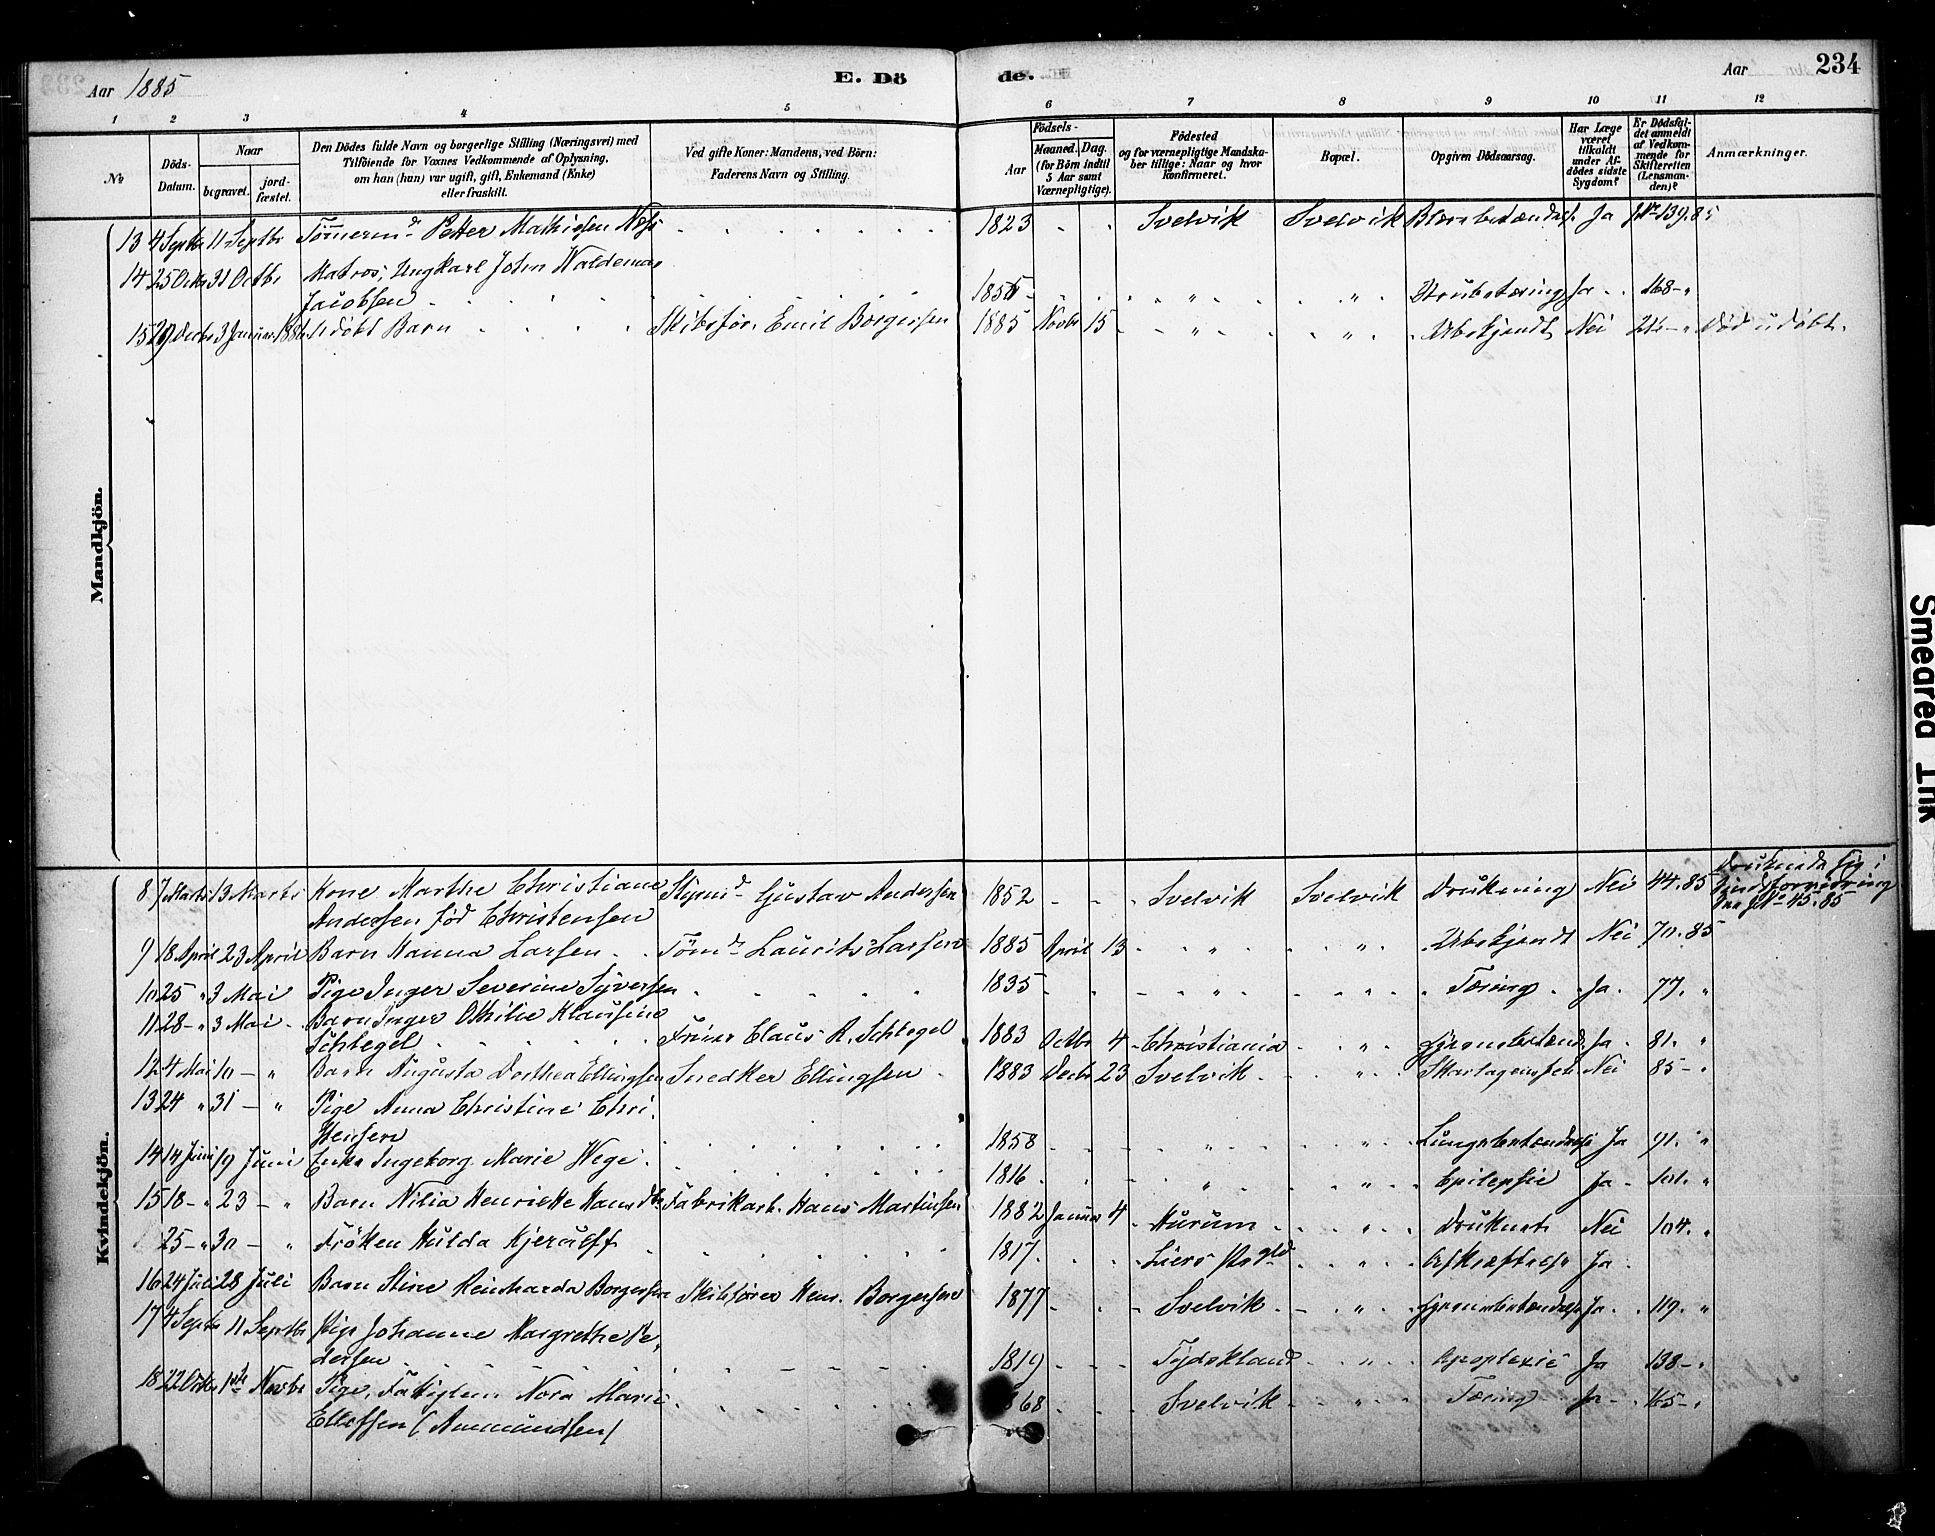 Aar 1885
E. Dö
de.
Aar
234
1 2 3 4 5 6 7 8 9 10 11 12
№
Döds-
Datum.
Naar
begravet.
jord-
fæstet.
Den Dödes fulde Navn og borgerlige Stilling (Næringsvei) med
Tilföiende for Voxnes Vedkommende af Oplysning,
om han (hun) var ugift, gift, Enkemand (Enke)
eller fraskilt.
Ved gifte Koner: Mandens, ved Börn:
Faderens Navn og Stilling.
Födsels-
Aar
Maaned.
Dag.
(for Börn indtil
5 Aar samt
Værnepligtige).
Födested
og for værnepligtige Mandska-
ber tillige: Naar og hvor
konfirmeret.
Bopæl.
Opgiven Dödsaarsag.
Har Læge
været
tilkaldt
under Af-
dödes sidste
Sygdom?
Er Dödsfal-
det anmeldt
af Vedkom-
mende for
Skifteretten
(Lensman-
den)?
Anmærkninger.
Mandkjön.
13 4 Septbr 11 Septbr Tømrermd Petter Mathisen Næs 1823 Svelvik Svelvik Blærebetændelse Ja №139.85
14 25 Octbr 31 Octbr Matros, Ungkarl John Waldemar
Jacobsen 1855 " " Strubetæring Ja 168-"
15 29 Decbr 3 Januar 1886 Udøbt Barn Skibsfør. Emil Borgersen 1885 Novbr 15 " " Ubekjendt Nei Død udøbt.
Kvindekjön.
8 7 Marts 13 Marts Kone Marthe Christiane Styrmd Gustav Andersen 1852 Svelvik Svelvik Drukning Nei 44.85 Druknede sig i
Andersen fød Christensen Sindsforvirring
№ 45.85
9 18 April 23 April Barn Hanna Larsen Tømd Laurits Larsen 1885 April 13 " " Ubekjendt Nei 70.85
10 25 " 3 Mai Pige Inger Severine Syversen 1835 " " Tæring Ja 77. "
11 28 - " 3 Mai Barn Inger Othilie Klausine
Schlegel Claus R. Schlegel 1883 Octbr 4 Christiania " Hjernebetænd. Ja 81. "
12 4 Mai 10 - " Barn Augusta Dorthea Ellingsen Snedker Ellingsen 1883 Decbr 23 Svelvik " Skarlagensfeb Nei 85- "
13 24 " 31 - " Pige Anna Christine Chri-
stensen 1858 " " Lungebetændelse Ja 91. "
14 14 Juni 19 Juni Enke Ingeborg Marie Wege 1816 " " Epilepsie Ja 101. "
15 18 - " 23 - " Barn Nilia Henriette Hansdtr Fabrikarb. Hans Martinsen 1882 Januar 4 Hurum " Druknet Nei 104. "
25 - " 30 - " Frøken Hulda Kjerulff 1817 Liers Prgld " Afkræftelse Ja
16 24 Juli 28 Juli Barn Stine Reinharda Borgersen Skibsfører Hens. Borgersen 1877 Svelvik " Hjernebetændelse Ja 119. "
17 4 Septbr 11 Septbr Pige Johanne Margrethe Pe-
dersen 1819 Tydskland " Apoplexie Ja 138- "
18 22 Octbr 1ste Novbr Pige, Fattiglem Nora Marie
Ellefsen (Ammundsen) 1868 Svelvik " Tæring Ja 165- "
Smeared Ink